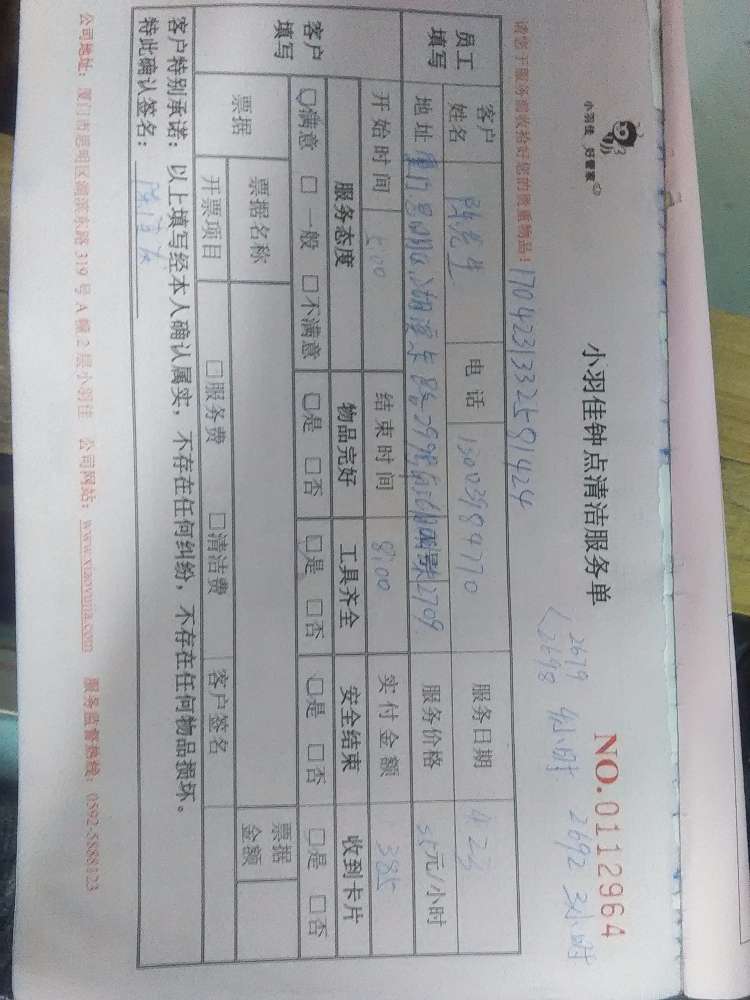 小羽佳 好管家
小羽佳钟点清洁服务单
NO.0112964
2679
2698 4小时 2692 3小时
请您于服务前收拾好您的贵重物品！
1704231332591424
员工填写 客户姓名 陈先生 电话 13003984770 服务日期 4.23
地址 服务价格 55元/小时
开始时间 1:00 结束时间 8:00 实付金额 385
客户填写 服务态度 物品完好 工具齐全 安全结束 收到卡片
☐满意 ☐一般 ☐不满意 ☐是 ☐否 ☐是 ☐否 ☐是 ☐否 ☐是 ☐否
票据 票据名称 票据金额
开票项目 ☐服务费 ☐清洁费 客户签名
客户特别承诺：以上填写经本人确认属实，不存在任何纠纷，不存在任何物品损坏。
特此确认签名：
公司地址：厦门市思明区湖滨东路 319 号 A 幢 2 层小羽佳 公司网站：www.xiaoyujia.com 服务监督热线：0592-5888123